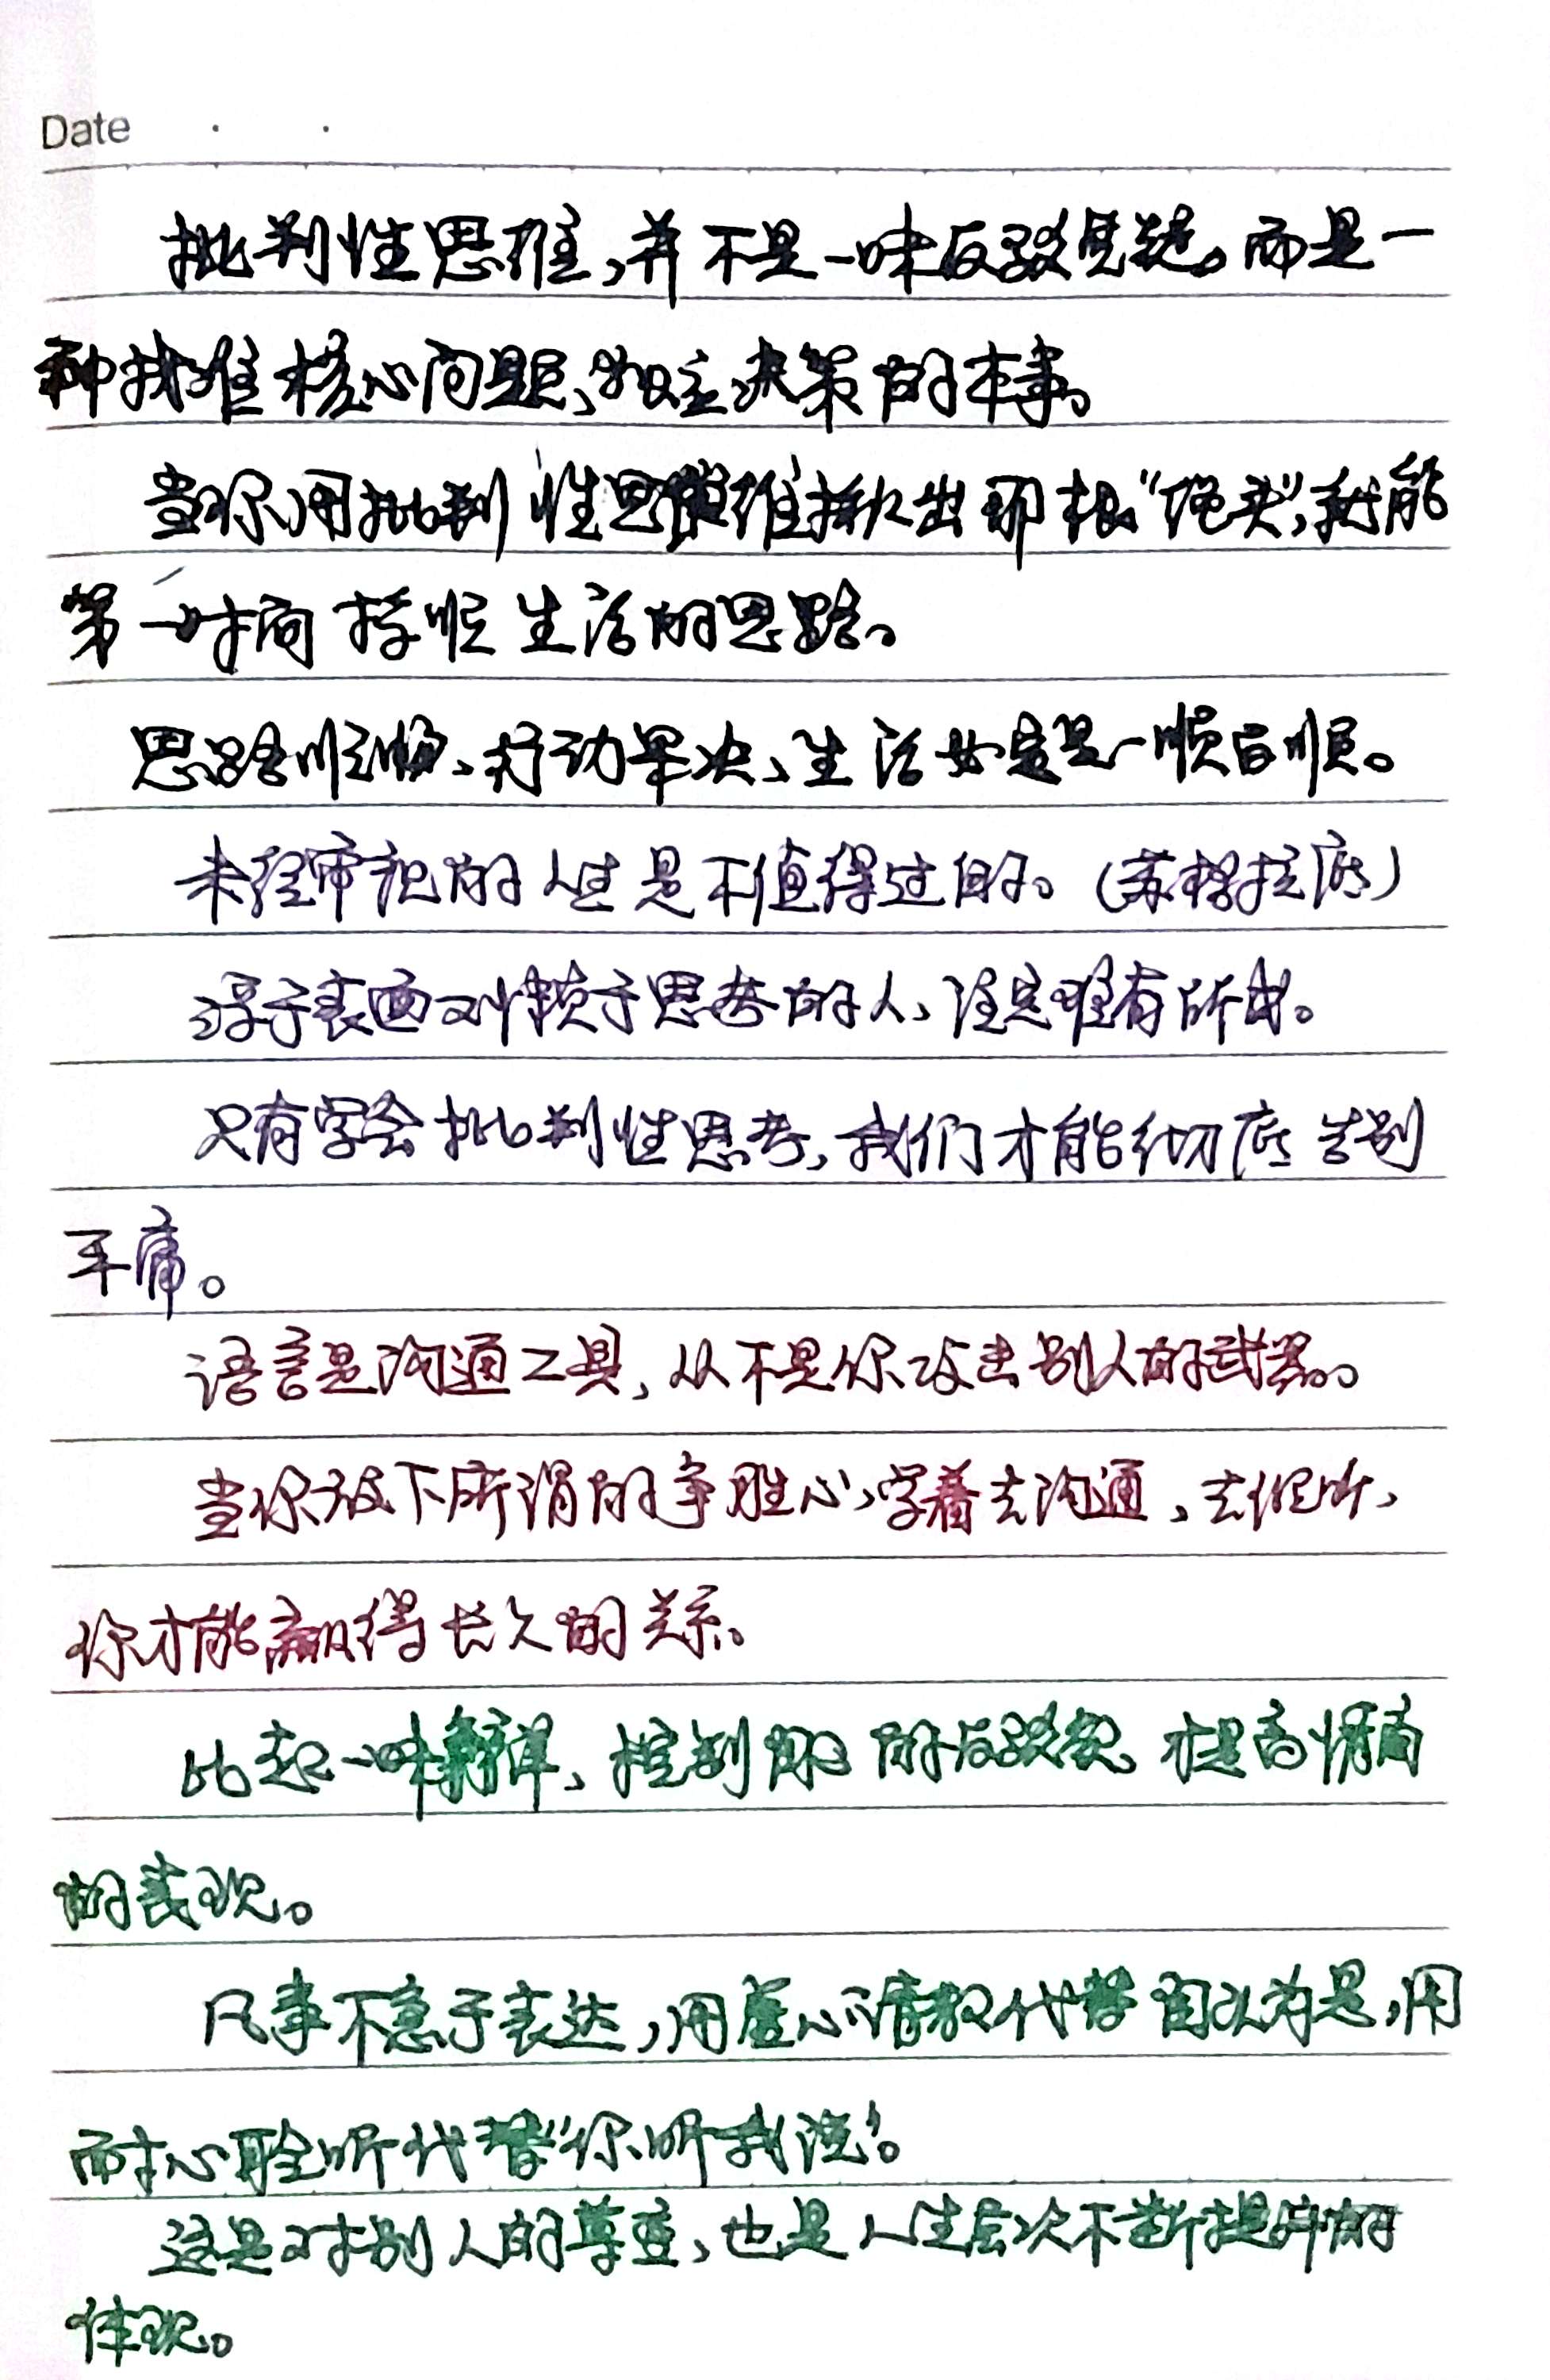 Date
批判性思维,并不是一味反驳质疑。而是一
种找准核心问题、自主决策的本事。
当你用批判性思维揪出那根“绳头”,就能
第一时间捋顺生活的思路。
思路顺畅、行动果决、生活必定是一顺百顺。
未经审视的人生是不值得过的。(苏格拉底)
浮于表面又懒于思考的人、注定难有所成。
只有学会批判性思考,我们才能彻底告别
平庸。
语言是沟通工具,从不是你攻击别人的武器。
当你放下所谓的争胜心,学着去沟通、去倾听、
你才能赢得长久的关系。
比起一味辩解、控制自己的反驳欲、才是高情商
的表现。
凡事不急于表达,用虚心请教代替自以为是,用
耐心聆听代替“你听我说”。
这是对别人的尊重,也是人生层次不断提升的
体现。